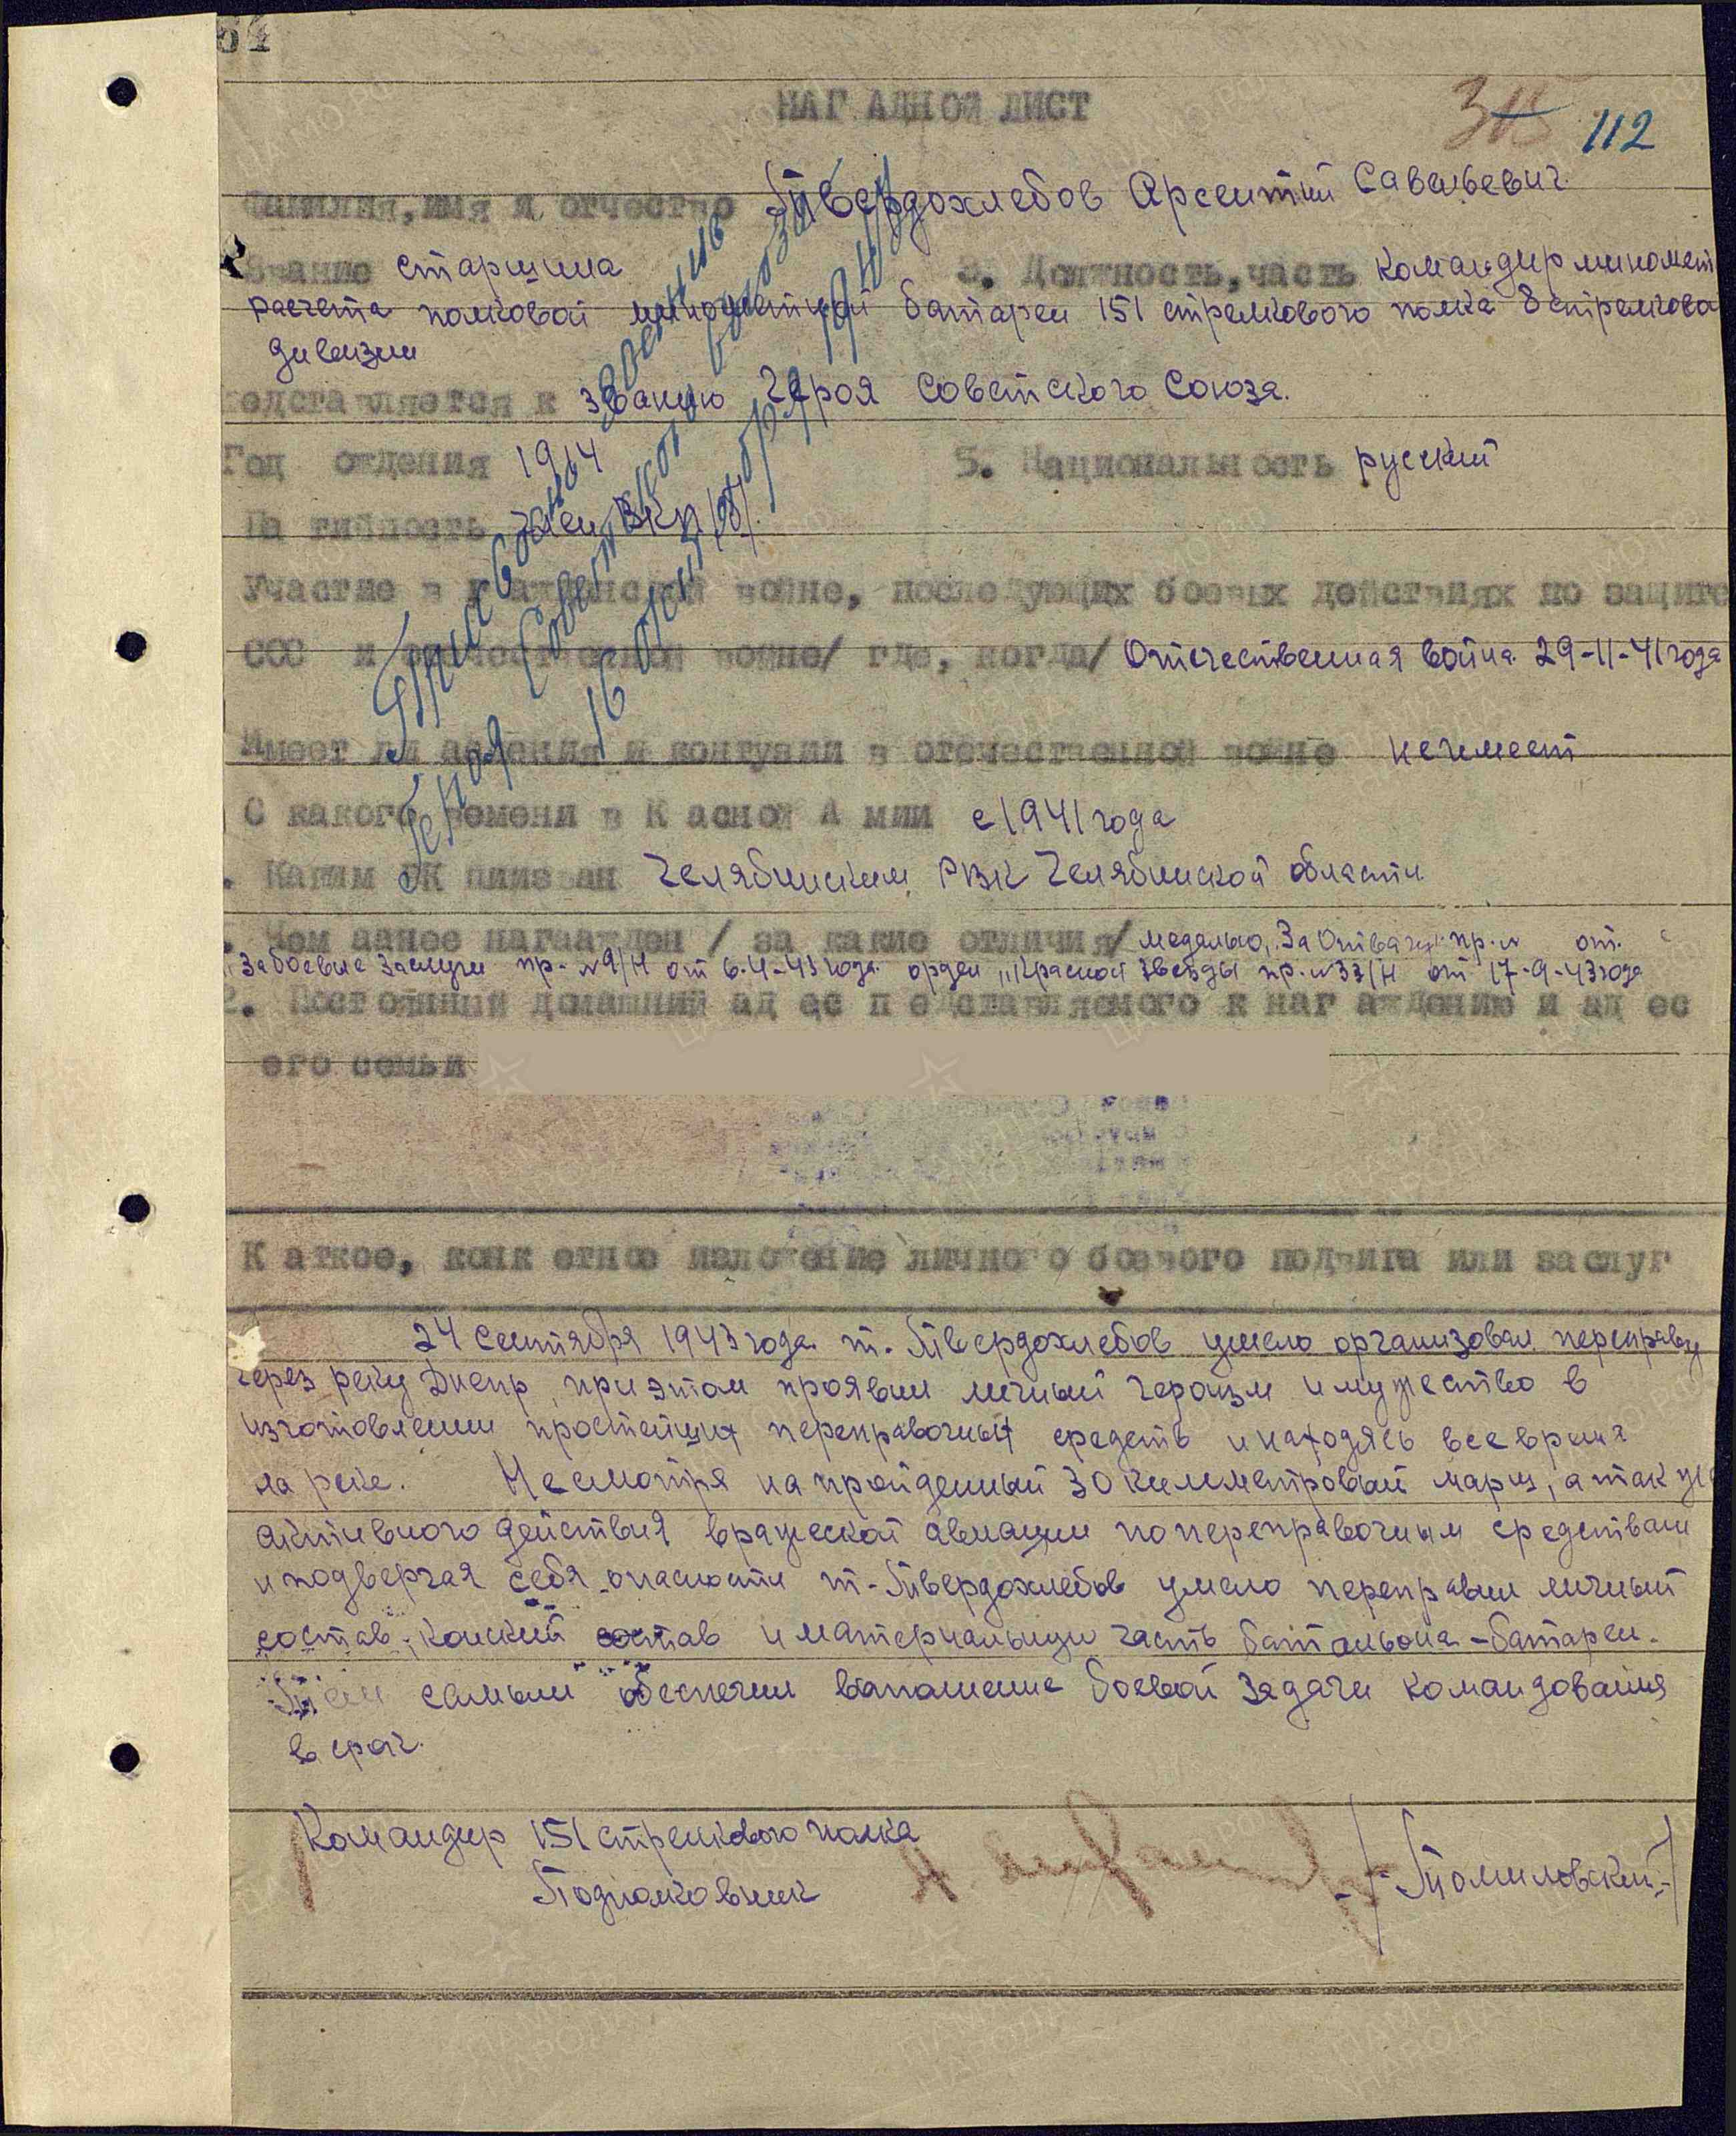 54
НАГ АДНОЙ ЛИСТ
315 112
Фамилия, имя и отчество Твердохлебов Арсентий Савельевич
Звание старшина 3. Должность, часть Командир миномет
расчета полковой минометной батареи 151 стрелкового полка 8 стрелково
дивизии
редставляется к званию Героя Советского Союза.
Год отдения 1914 5. Национальность русский
Па тийность член ВКП/б/.
Участие в г ажданской войне, последующих боевых действиях по защите
ССС и отечественной войне/ где, когда/ Отечественная война 29-11-41 года
Имеет ли анения и контузии в отечественной войне не имеет
С какого времени в К асной А мии с 1941 года
. Каким ВК призван Челябинским РВК Челябинской области
. Чем анее наг ажден / за какие отличия/ медалью, За Отвагу" пр. № от.
"За боевые заслуги пр. №9/Н от 6.4-43 года. орден "Красной Звезды пр. №33/Н от 17-9-43 года
2. Постоянный домашний ад ес п едставляемого к наг аждению и ад ес
его семьи
К аткое, конк етное изложение личного боевого подвига или заслуг
24 сентября 1943 года т. Твердохлебов умело организовал переправу
через реку Днепр, при этом проявил личный героизм и мужество в
изготовлении простейших переправочных средств и находясь все время
на реке. Несмотря на пройденный 30 километровый марш, а так же
активного действия вражеской авиации по переправочным средствам
и подвергая себя опасности т. Твердохлебов умело переправил личный
состав, конский состав и материальную часть батальона - батареи.
Тем самым обеспечил выполнение боевой задачи командования
в срок.
Командир 151 стрелкового полка
Подполковник /Томиловский/
Присвоено
Героя Советского Союза
16 октября 1943